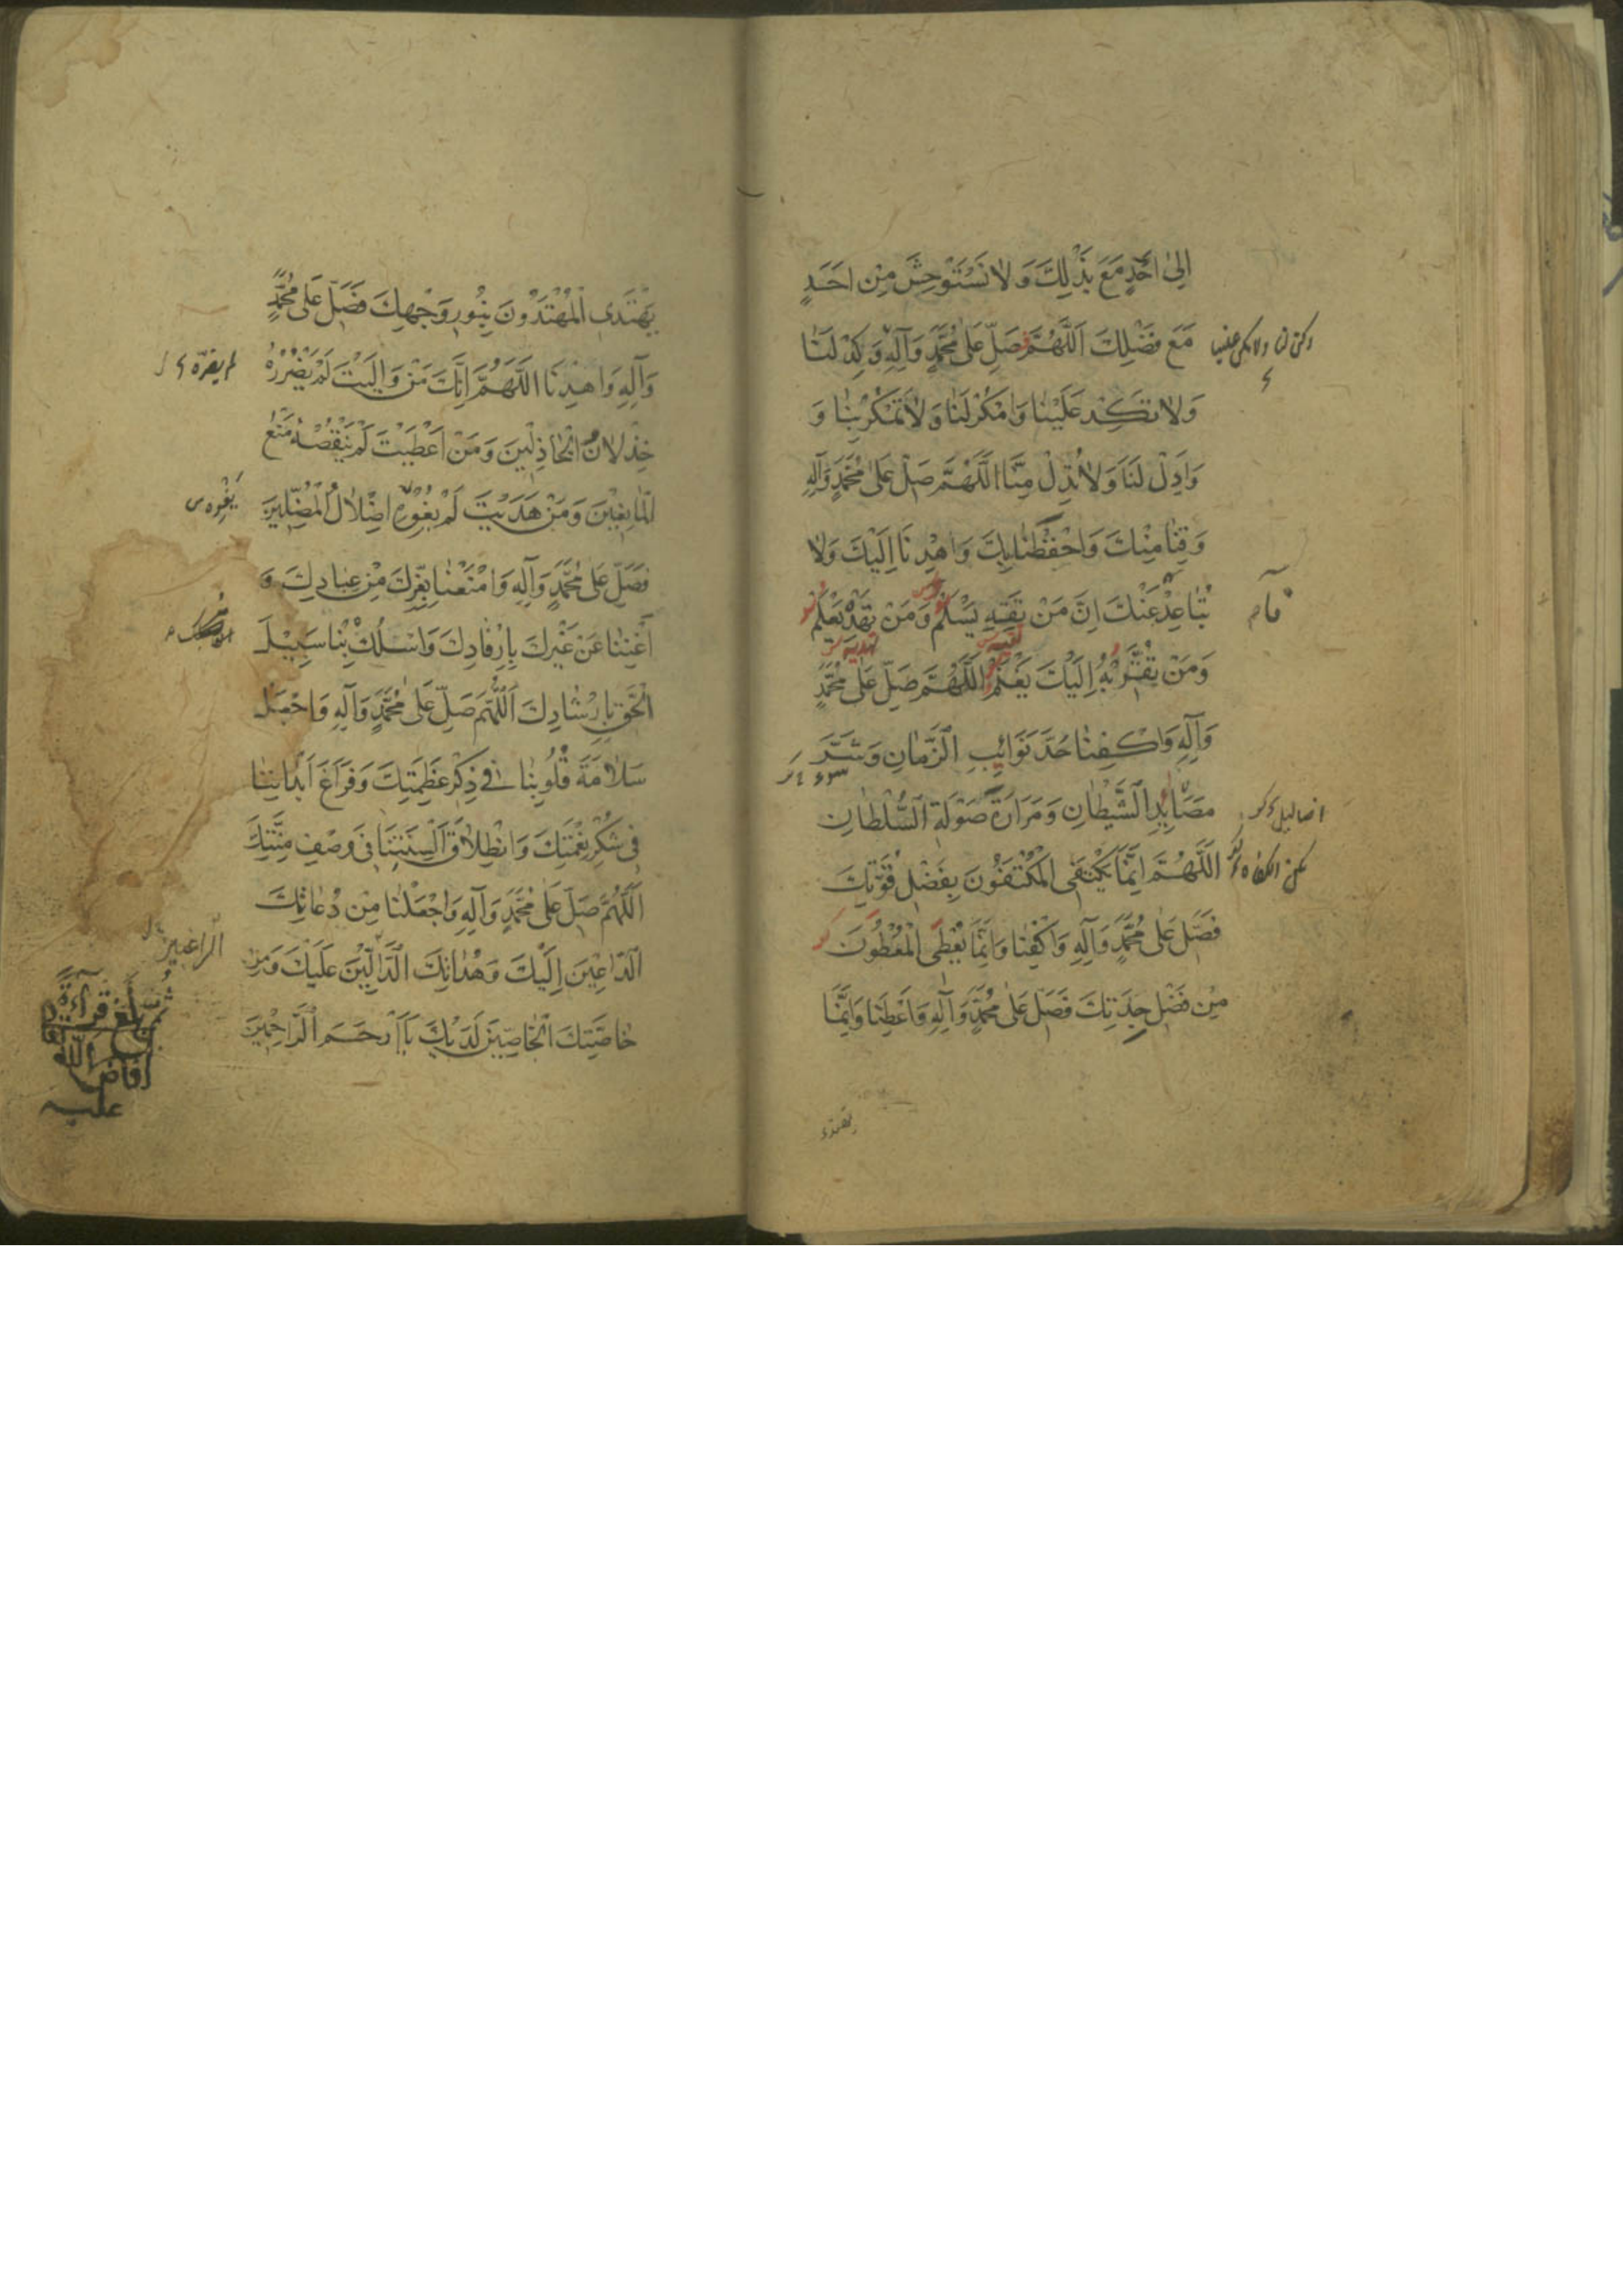 اِلىٰ اَحَدٍ مَعَ بَذْلِكَ وَلا نَسْتَوْحِشَ مِنْ اَحَدٍ
مَعَ فَضْلِكَ اَللّٰهُمَّ صَلِّ عَلىٰ مُحَمَّدٍ وَآلِهِ وَكِدْ لَنٰا
وَلا تَكِدْ عَلَيْنٰا وَامْكُرْ لَنٰا وَلا تَمْكُرْ بِنٰا وَ
وَاَدِلْ لَنٰا وَلا تُدِلْ مِنّٰا اَللّٰهُمَّ صَلِّ عَلىٰ مُحَمَّدٍ وَآلِهِ
وَقِنٰا مِنْكَ وَاحْفَظْنٰا بِكَ وَاهْدِنٰا اِلَيْكَ وَلا
تُبٰاعِدْنٰا عَنْكَ اِنَّ مَنْ تَقِهِ يَسْلَمْ وَمَنْ تَهْدِ يَعْلَمْ
وَمَنْ تُقَرِّبْهُ اِلَيْكَ يَغْنَمْ اَللّٰهُمَّ صَلِّ عَلىٰ مُحَمَّدٍ
وَآلِهِ وَاكْفِنٰا حَدَّ نَوٰائِبِ الزَّمٰانِ وَشَرَّ
مَصٰائِدِ الشَّيْطٰانِ وَمَرٰارَةَ صَوْلَةِ السُّلْطٰانِ
اَللّٰهُمَّ اِنَّمٰا يَكْتَفِي الْمُكْتَفُونَ بِفَضْلِ قُوَّتِكَ
فَصَلِّ عَلىٰ مُحَمَّدٍ وَآلِهِ وَاكْفِنٰا وَاِنَّمٰا يُعْطِي الْمُعْطُونَ
مِنْ فَضْلِ جِدَتِكَ فَصَلِّ عَلىٰ مُحَمَّدٍ وَآلِهِ وَاَعْطِنٰا وَاِنَّمٰا
يهتدى
يَهْتَدِي الْمُهْتَدُونَ بِنُورِ وَجْهِكَ فَصَلِّ عَلىٰ مُحَمَّدٍ
وَآلِهِ وَاهْدِنٰا اَللّٰهُمَّ اِنَّكَ مَنْ وٰالَيْتَ لَمْ يَضْرُرْهُ
لم يضرّه
خِذْلانُ الْخٰاذِلِينَ وَمَنْ اَعْطَيْتَ لَمْ يَنْقُصْهُ مَنْعُ
الْمٰانِعِينَ وَمَنْ هَدَيْتَ لَمْ يُغْوِهِ اِضْلالُ الْمُضِلِّينَ
يَغْوِه
فَصَلِّ عَلىٰ مُحَمَّدٍ وَآلِهِ وَامْنَعْنٰا بِعِزِّكَ مِنْ عِبٰادِكَ وَ
اَغْنِنٰا عَنْ غَيْرِكَ بِاِرْفٰادِكَ وَاسْلُكْ بِنٰا سَبِيلَ
الْحَقِّ بِاِرْشٰادِكَ اَللّٰهُمَّ صَلِّ عَلىٰ مُحَمَّدٍ وَآلِهِ وَاجْعَلْ
سَلامَةَ قُلُوبِنٰا فِي ذِكْرِ عَظَمَتِكَ وَفَرٰاغَ اَبْدٰانِنٰا
فِي شُكْرِ نِعْمَتِكَ وَانْطِلاقَ اَلْسِنَتِنٰا فِي وَصْفِ مِنَّتِكَ
اَللّٰهُمَّ صَلِّ عَلىٰ مُحَمَّدٍ وَآلِهِ وَاجْعَلْنٰا مِنْ دُعٰاتِكَ
الدّٰاعِينَ اِلَيْكَ وَهُدٰاتِكَ الدّٰالِّينَ عَلَيْكَ وَمِنْ
الراغبين
خٰاصَّتِكَ الْخٰاصِّينَ لَدَيْكَ يٰا اَرْحَمَ الرّٰاحِمِينَ
بلغ قراءة
الله
عليه